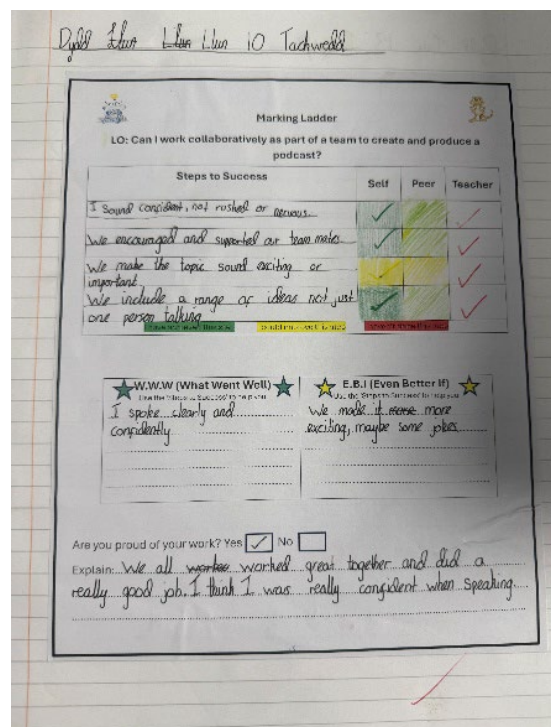 Dydd Llun 10 Tachwedd
Marking Ladder
LO: Can I work collaboratively as part of a team to create and produce a
podcast?
Steps to Success
Self Peer Teacher
I sound confident, not rushed or nervous.
We encouraged and supported our team mates.
We make the topic sound exciting or
important.
We include a range of ideas not just
one person talking
W.W.W (What Went Well)
Use the 'Steps to Success' to help you
I spoke clearly and
confidently
E.B.I (Even Better If)
Use the 'Steps to Success' to help you
We made it more
exciting, maybe some jokes.
Are you proud of your work? Yes No
Explain: We all worked great together and did a
really good job. I think I was really confident when speaking.